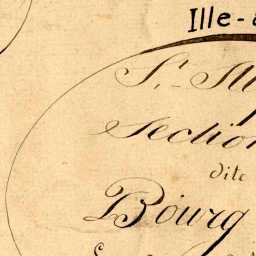 Ille-
St.
Section
dite
Bourg